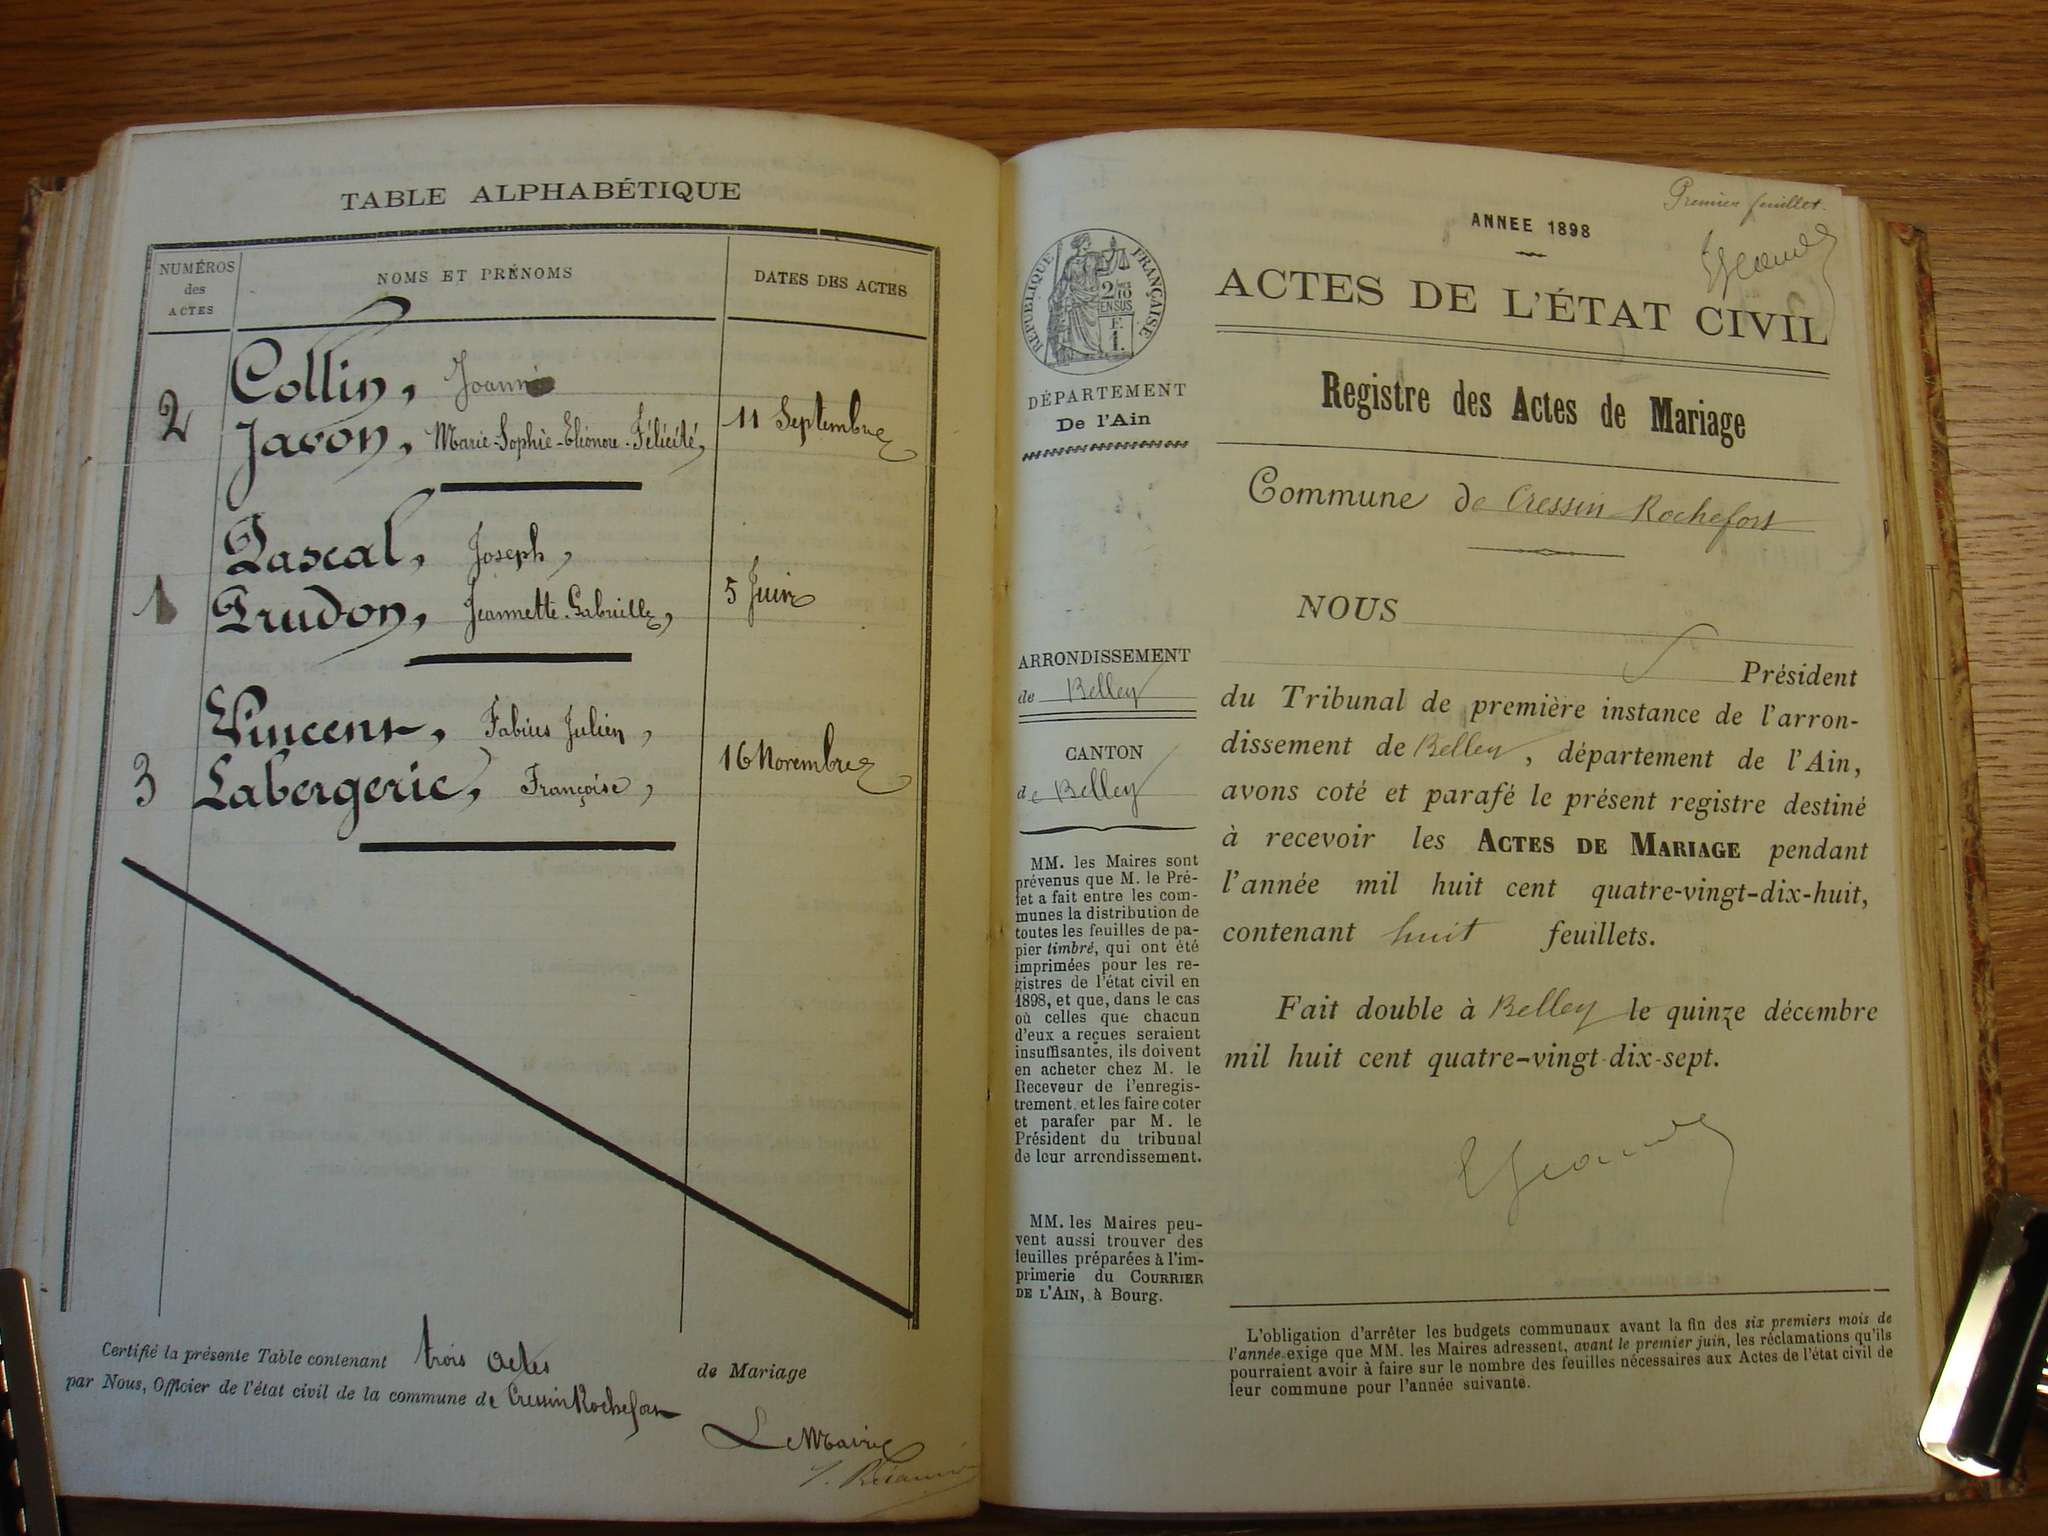 TABLE ALPHABÉTIQUE
NUMÉROS
des
ACTES
NOMS ET PRÉNOMS
DATES DES ACTES
Collin, Joanni
2
Javon, Marie-Sophie-Eléonore-Félicité,
11 Septembre
Pascal, Joseph,
1
Prudon, Jeannette-Gabrielle,
5 Juin
Vincent, Fabius Julien,
3
Labergerie, Françoise,
16 Novembre
Certifié la présente Table contenant trois actes de Mariage
par Nous, Officier de l'état civil de la commune de Cressin Rochefort
Le Maire
Premier feuillet.
ANNEE 1898
ACTES DE L'ÉTAT CIVIL
Registre des Actes de Mariage
Commune de Cressin Rochefort
RÉPUBLIQUE FRANÇAISE
2/10
EN SUS
F.
1.
DÉPARTEMENT
De l'Ain
ARRONDISSEMENT
de Belley
CANTON
de Belley
MM. les Maires sont
prévenus que M. le Pré-
fet a fait entre les com-
munes la distribution de
toutes les feuilles de pa-
pier timbré, qui ont été
imprimées pour les re-
gistres de l'état civil en
1898, et que, dans le cas
où celles que chacun
d'eux a reçues seraient
insuffisantes, ils doivent
en acheter chez M. le
Receveur de l'enregis-
trement, et les faire coter
et parafer par M. le
Président du tribunal
de leur arrondissement.
MM. les Maires peu-
vent aussi trouver des
feuilles préparées à l'im-
primerie du COURRIER
DE L'AIN, à Bourg.
NOUS
Président
du Tribunal de première instance de l'arron-
dissement de Belley, département de l'Ain,
avons coté et parafé le présent registre destiné
à recevoir les ACTES DE MARIAGE pendant
l'année mil huit cent quatre-vingt-dix-huit,
contenant huit feuillets.
Fait double à Belley le quinze décembre
mil huit cent quatre-vingt-dix-sept.
L'obligation d'arrêter les budgets communaux avant la fin des six premiers mois de
l'année exige que MM. les Maires adressent, avant le premier juin, les réclamations qu'ils
pourraient avoir à faire sur le nombre des feuilles nécessaires aux Actes de l'état civil de
leur commune pour l'année suivante.